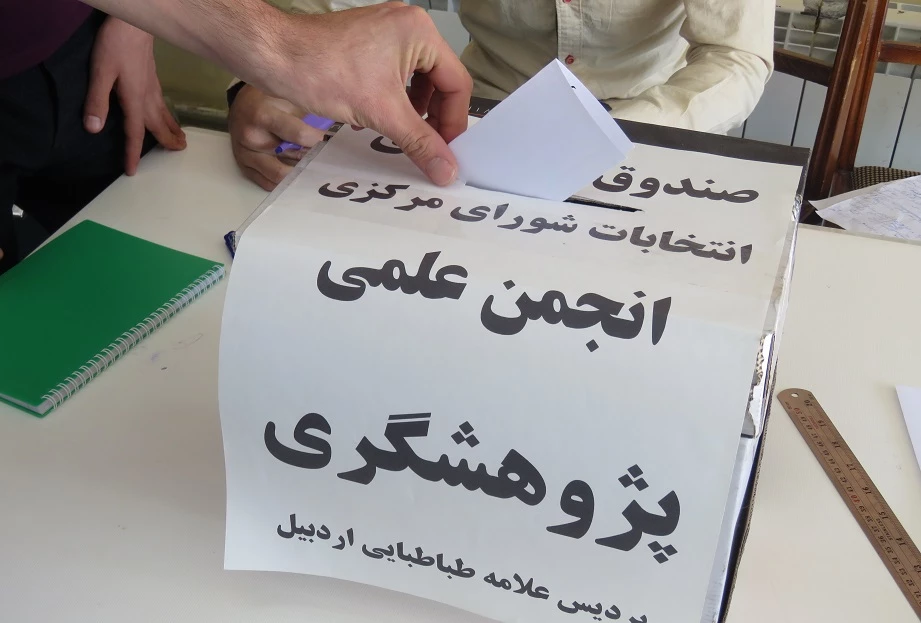 صندوق
انتخابات شورای مرکزی
انجمن علمی
پژوهشگری
پردیس علامه طباطبایی اردبیل